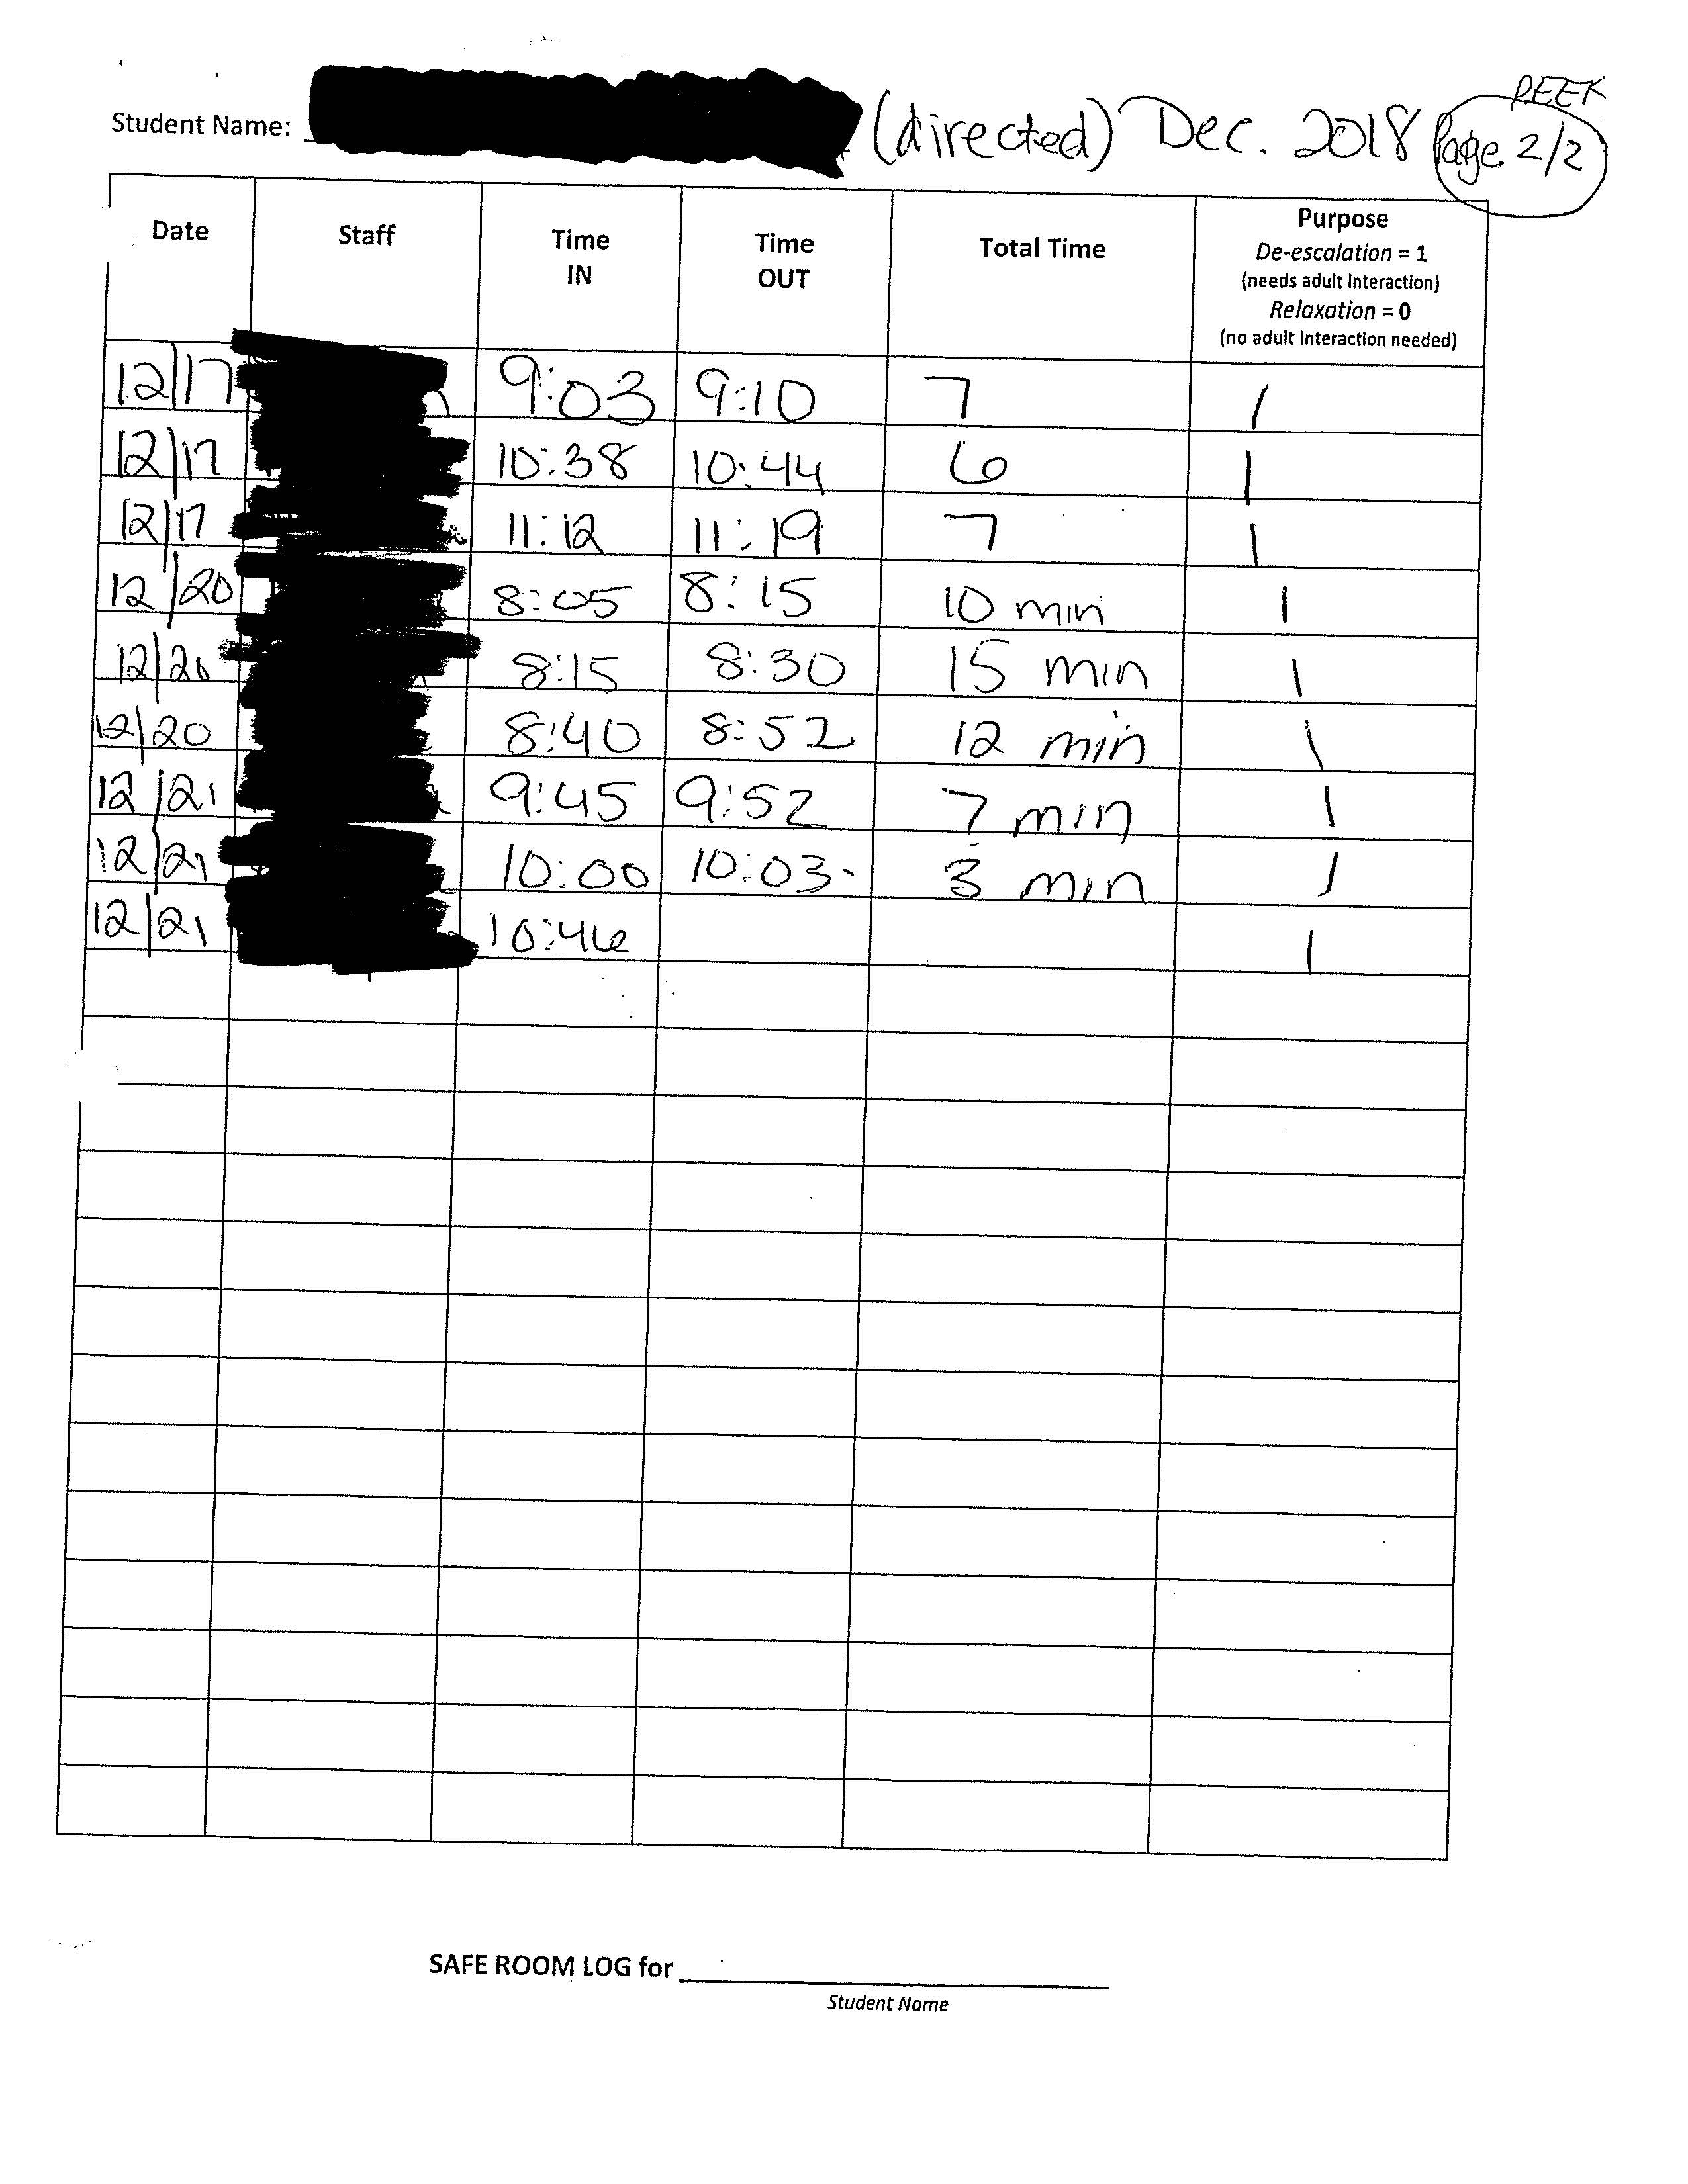 PEEK
Student Name: (directed) Dec. 2018 Page 2/2
Date Staff Time IN Time OUT Total Time Purpose
De-escalation = 1
(needs adult Interaction)
Relaxation = 0
(no adult Interaction needed)
12/17 9:03 9:10 7 1
12/17 10:38 10:44 6 1
12/17 11:12 11:19 7 1
12/20 8:05 8:15 10 min 1
12/20 8:15 8:30 15 min 1
12/20 8:40 8:52 12 min 1
12/21 9:45 9:52 7 min 1
12/21 10:00 10:03 3 min 1
12/21 10:46 1
SAFE ROOM LOG for
Student Name